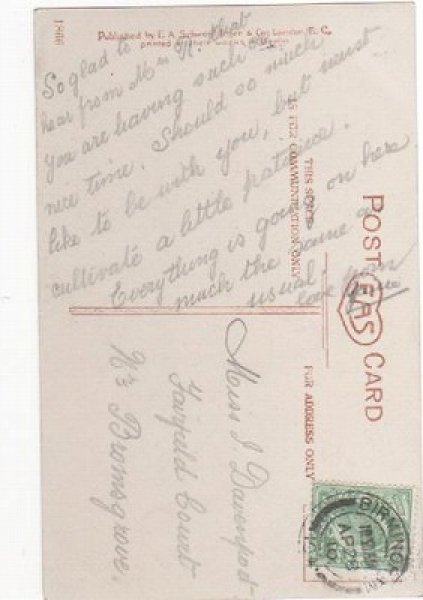 1866
Published by E. A. Schwerdtfeger & Co., London, E. C.
PRINTED AT THEIR WORKS IN Berlin
So glad to
hear from Mrs N. that
you are having such a
nice time. Should so much
like to be with you, but must
cultivate a little patience.
Everything is going on here
much the same as
usual.
love from
THIS SPACE
IS FOR COMMUNICATION ONLY
POST CARD
EAS
FOR ADDRESS ONLY
Miss I. Davenport
Fairfield Court
Nr Bromsgrove.
BIRMINGHAM
AP 28